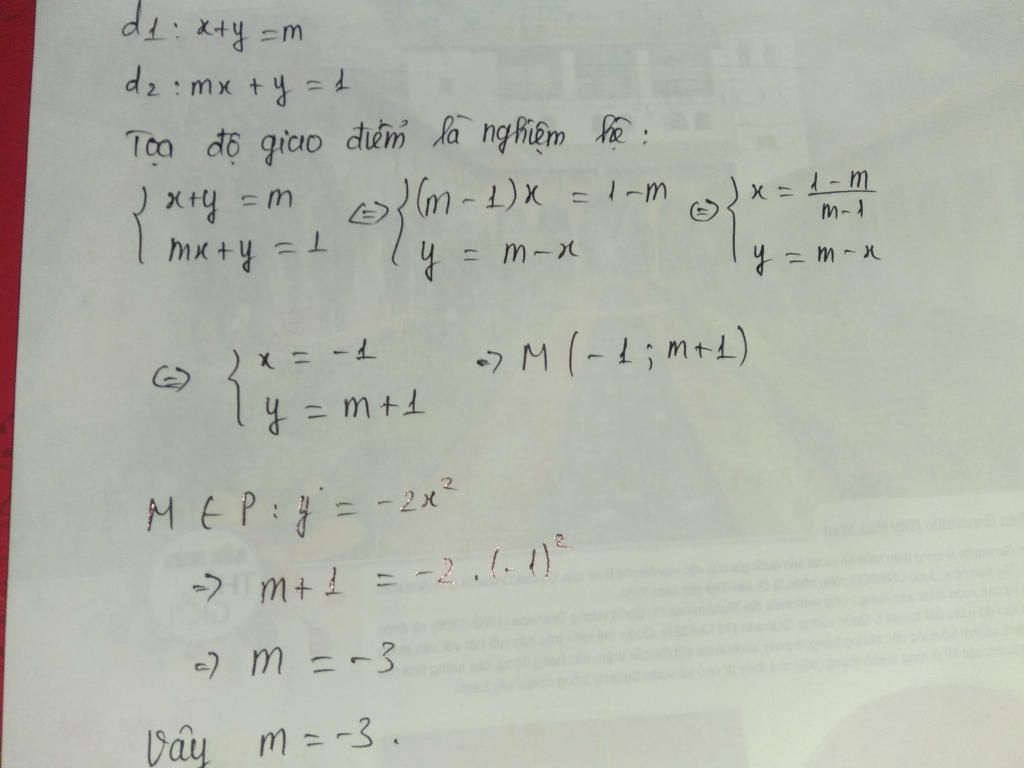 d1: x+y = m
d2: mx + y = 1
Tọa độ giao điểm là nghiệm hệ:
{ x+y = m ⇔ { (m - 1)x = 1 - m ⇔ { x = (1 - m)/(m - 1)
mx + y = 1 y = m - x y = m - x
⇔ { x = -1 ⇒ M (-1; m+1)
y = m + 1
M ∈ P: y = -2x²
⇒ m + 1 = -2 . (-1)²
⇒ m = -3
Vậy m = -3.